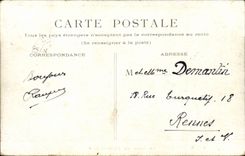 CARTE POSTALE
Tous les pays étrangers n'acceptent pas la correspondance au recto
(Se renseigner à la poste)
CORRESPONDANCE
ADRESSE
M et Melle Domantin
18. Rue Turquetil, 18
Rennes
I. et V.